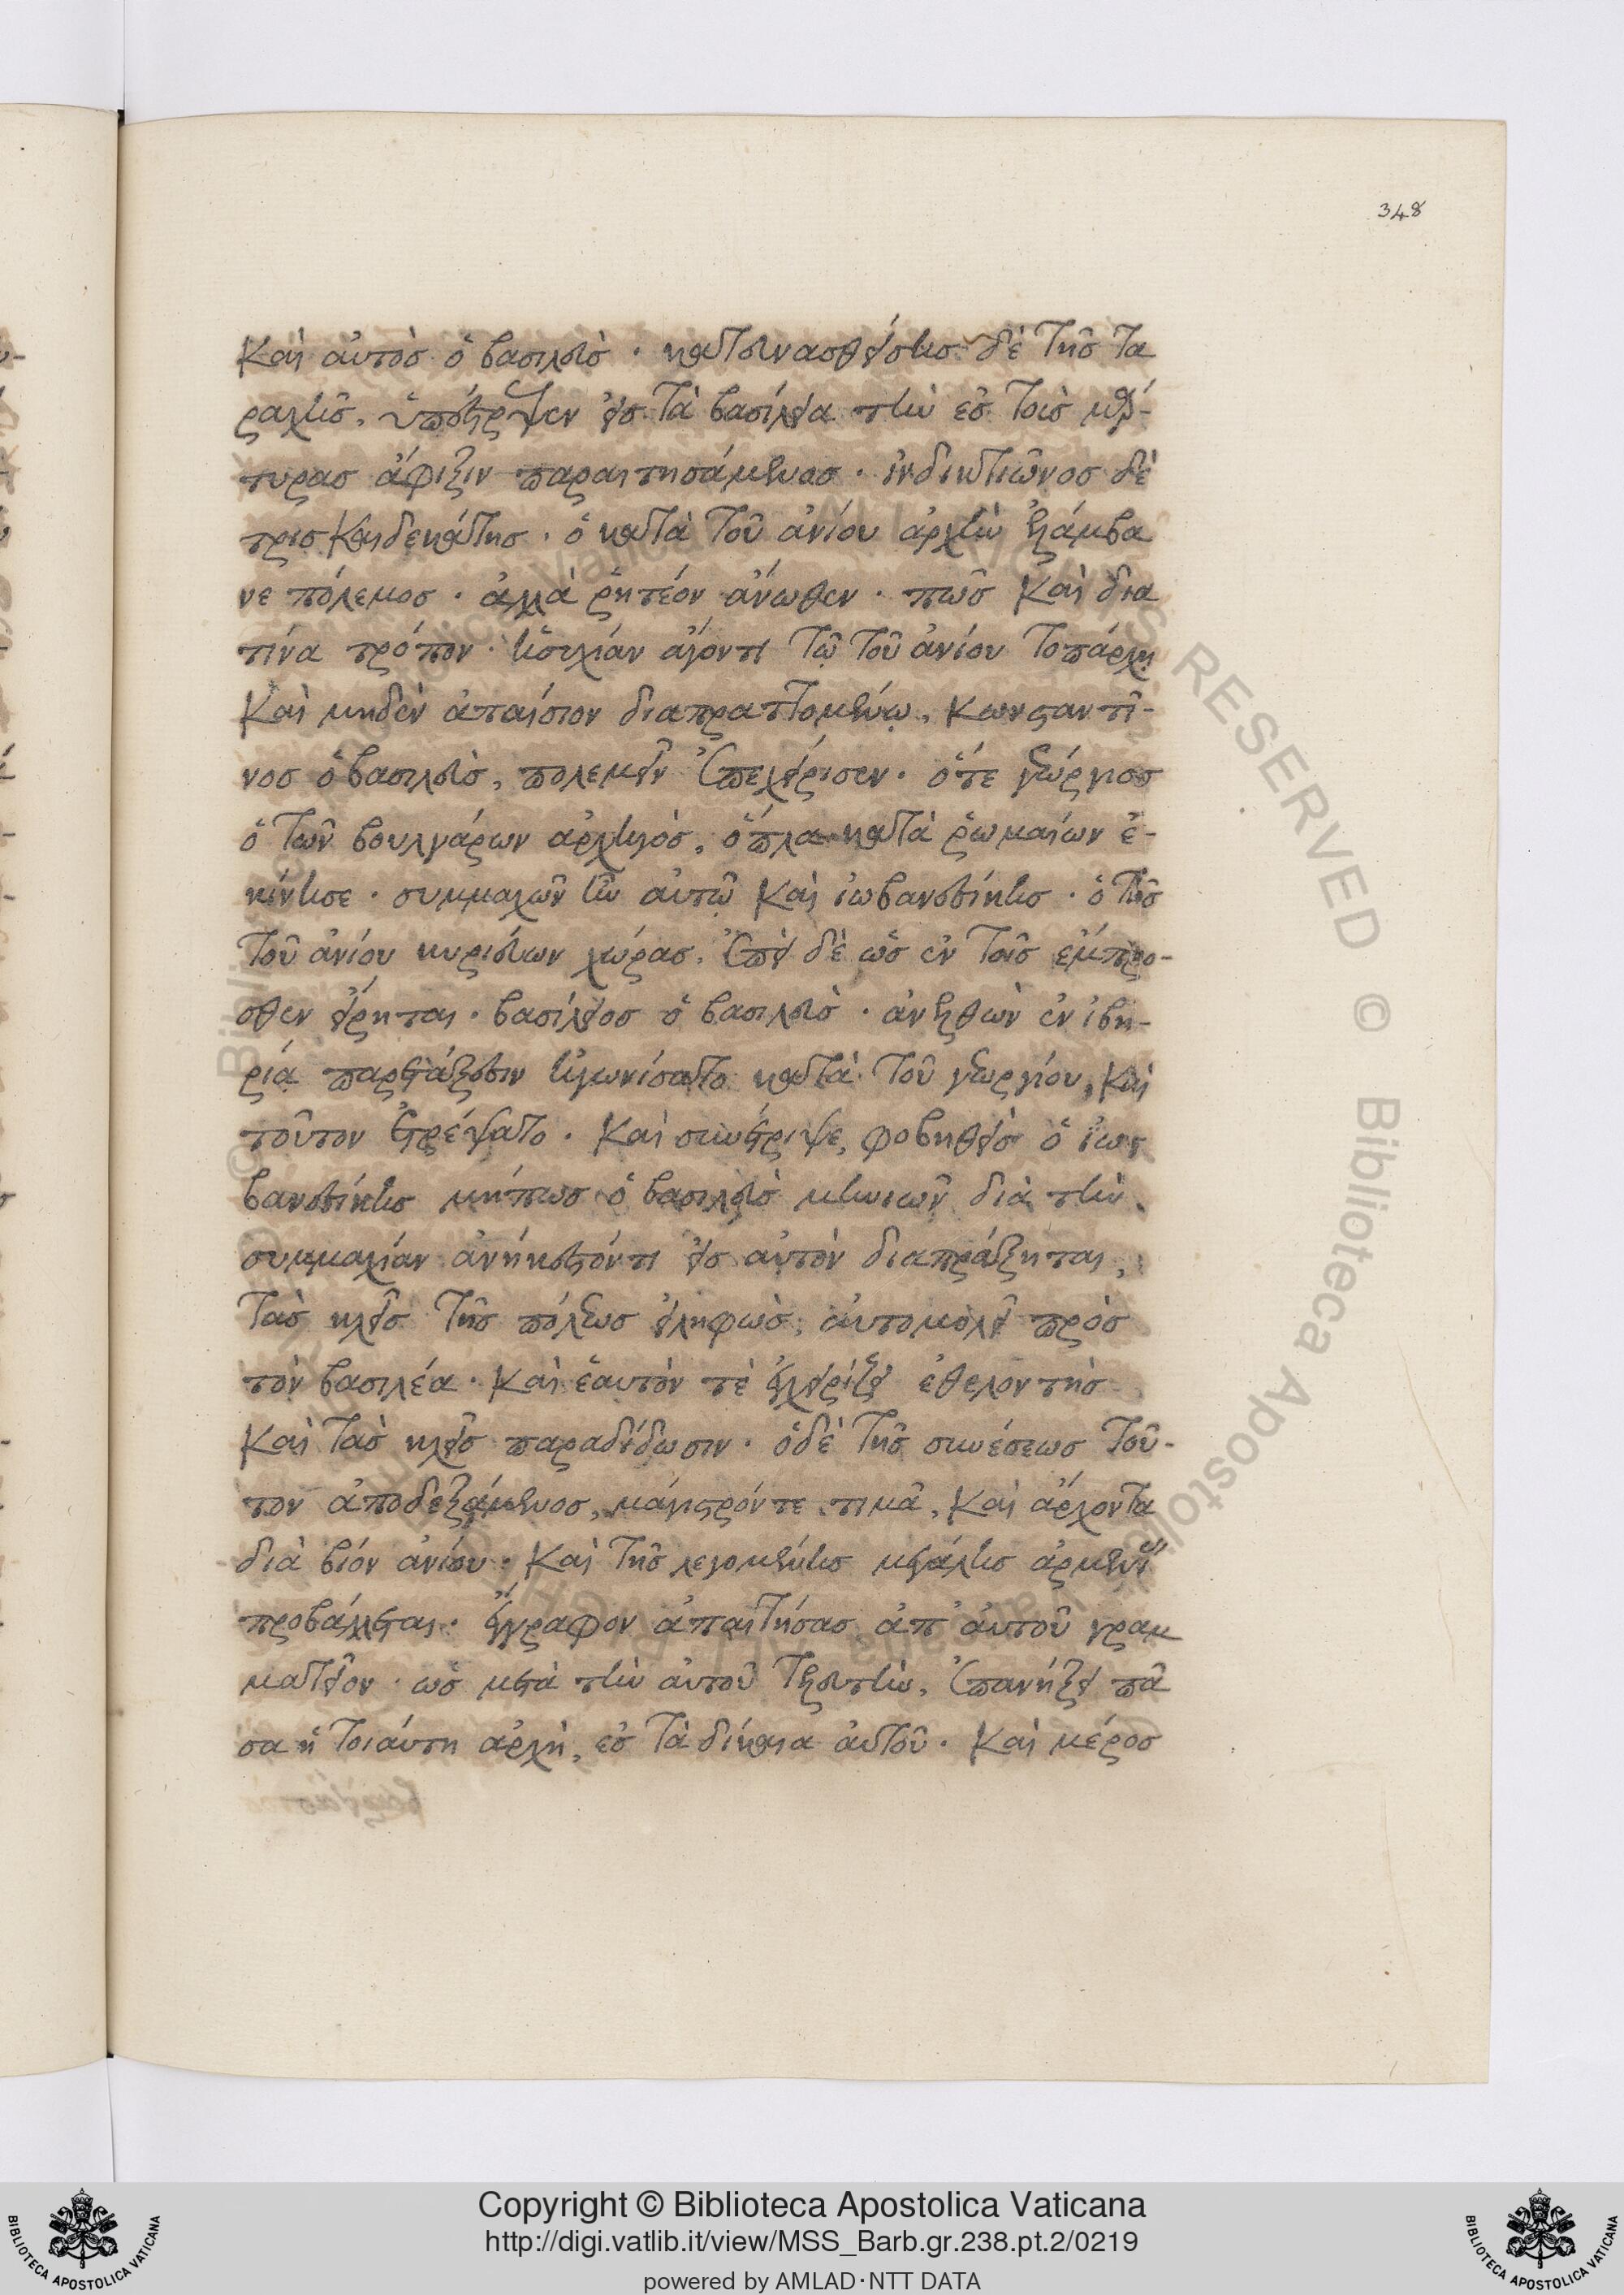 348
Καὶ αὐτὸσ ὁ βασιλεὺσ · κατευνασθείσησ δὲ τῆσ τα
ραχῆσ, ὑπέστρεψεν εἰσ τὰ βασίλεια τὴν εἰσ τοὺσ μάρ-
τυρασ ἄφιξιν παραιτησάμενοσ · ἰνδικτιῶνοσ δὲ
τρισκαιδεκάτησ · ὁ κατὰ τοῦ ἀνίου ἀρχὴν ἐλάμβα
νε πόλεμοσ · ἀλλὰ ῥητέον ἄνωθεν · πῶσ καὶ δια
τίνα τρόπον · ἡσυχίαν ἄγοντι τῷ τοῦ ἀνίου τοπάρχῃ
Καὶ μηδὲν ἀπαίσιον διαπραττομένῳ, κωνσταντῖ-
νοσ ὁ βασιλεὺσ, πολεμεῖν ἐπεχείρισεν · ὅτε γεώργιοσ
ὁ τῶν βουλγάρων ἀρχηγὸσ, ὅπλα κατὰ ῥωμαίων ἐ-
κίνησε · συμμαχῶν ἦν αὐτῷ καὶ ἰωβανεσίκησ · ὁ τῆσ
τοῦ ἀνίου κυριεύων χώρασ, ἐπεὶ δὲ ὡσ ἐν τοῖσ ἔμπρο-
σθεν εἴρηται · βασίλειοσ ὁ βασιλεὺσ · ἀνελθὼν ἐν ἰβη-
ρίᾳ παρετάξευσιν ἠγωνίσατο κατὰ τοῦ γεωργίου, καὶ
τοῦτον ἐτρέψατο · Καὶ συνέτριψε, φοβηθεὶσ ὁ ἰω
βανεσίκησ μήπωσ ὁ βασιλεὺσ μηνιῶν διὰ τὴν
συμμαχίαν ἀνήκεστόν τι εἰσ αὐτὸν διαπράξηται,
τὰσ κλεῖσ τῆσ πόλεωσ εἰληφὼσ, αὐτομολεῖ πρὸσ
τὸν βασιλέα · Καὶ ἑαυτὸν τὲ ἐγχείριζει ἐθελοντὴσ
Καὶ τὰσ κλεῖσ παραδίδωσιν · ὁδὲ τῆσ συνέσεωσ τοῦ-
τον ἀποδεξάμενοσ, μάγιστρόν τε τιμᾶ, Καὶ ἄρχοντα
διὰ βίον ἀνίου · Καὶ τῆσ λεγομένησ μεγάλησ ἀρμενί
προβάλλεται · ἔγγραφον ἀπαιτήσασ ἀπ' αὐτοῦ γραμ
ματεῖον · ὡσ μετὰ τὴν αὐτοῦ τελευτὴν, ἐπανήξει πᾶ
σα ἡ τοιαύτη ἀρχὴ, εἰσ τὰ δίκαια αὐτοῦ · Καὶ μέροσ
Copyright © Biblioteca Apostolica Vaticana
http://digi.vatlib.it/view/MSS_Barb.gr.238.pt.2/0219
powered by AMLAD·NTT DATA
BIBLIOTECA APOSTOLICA VATICANA
BIBLIOTECA APOSTOLICA VATICANA